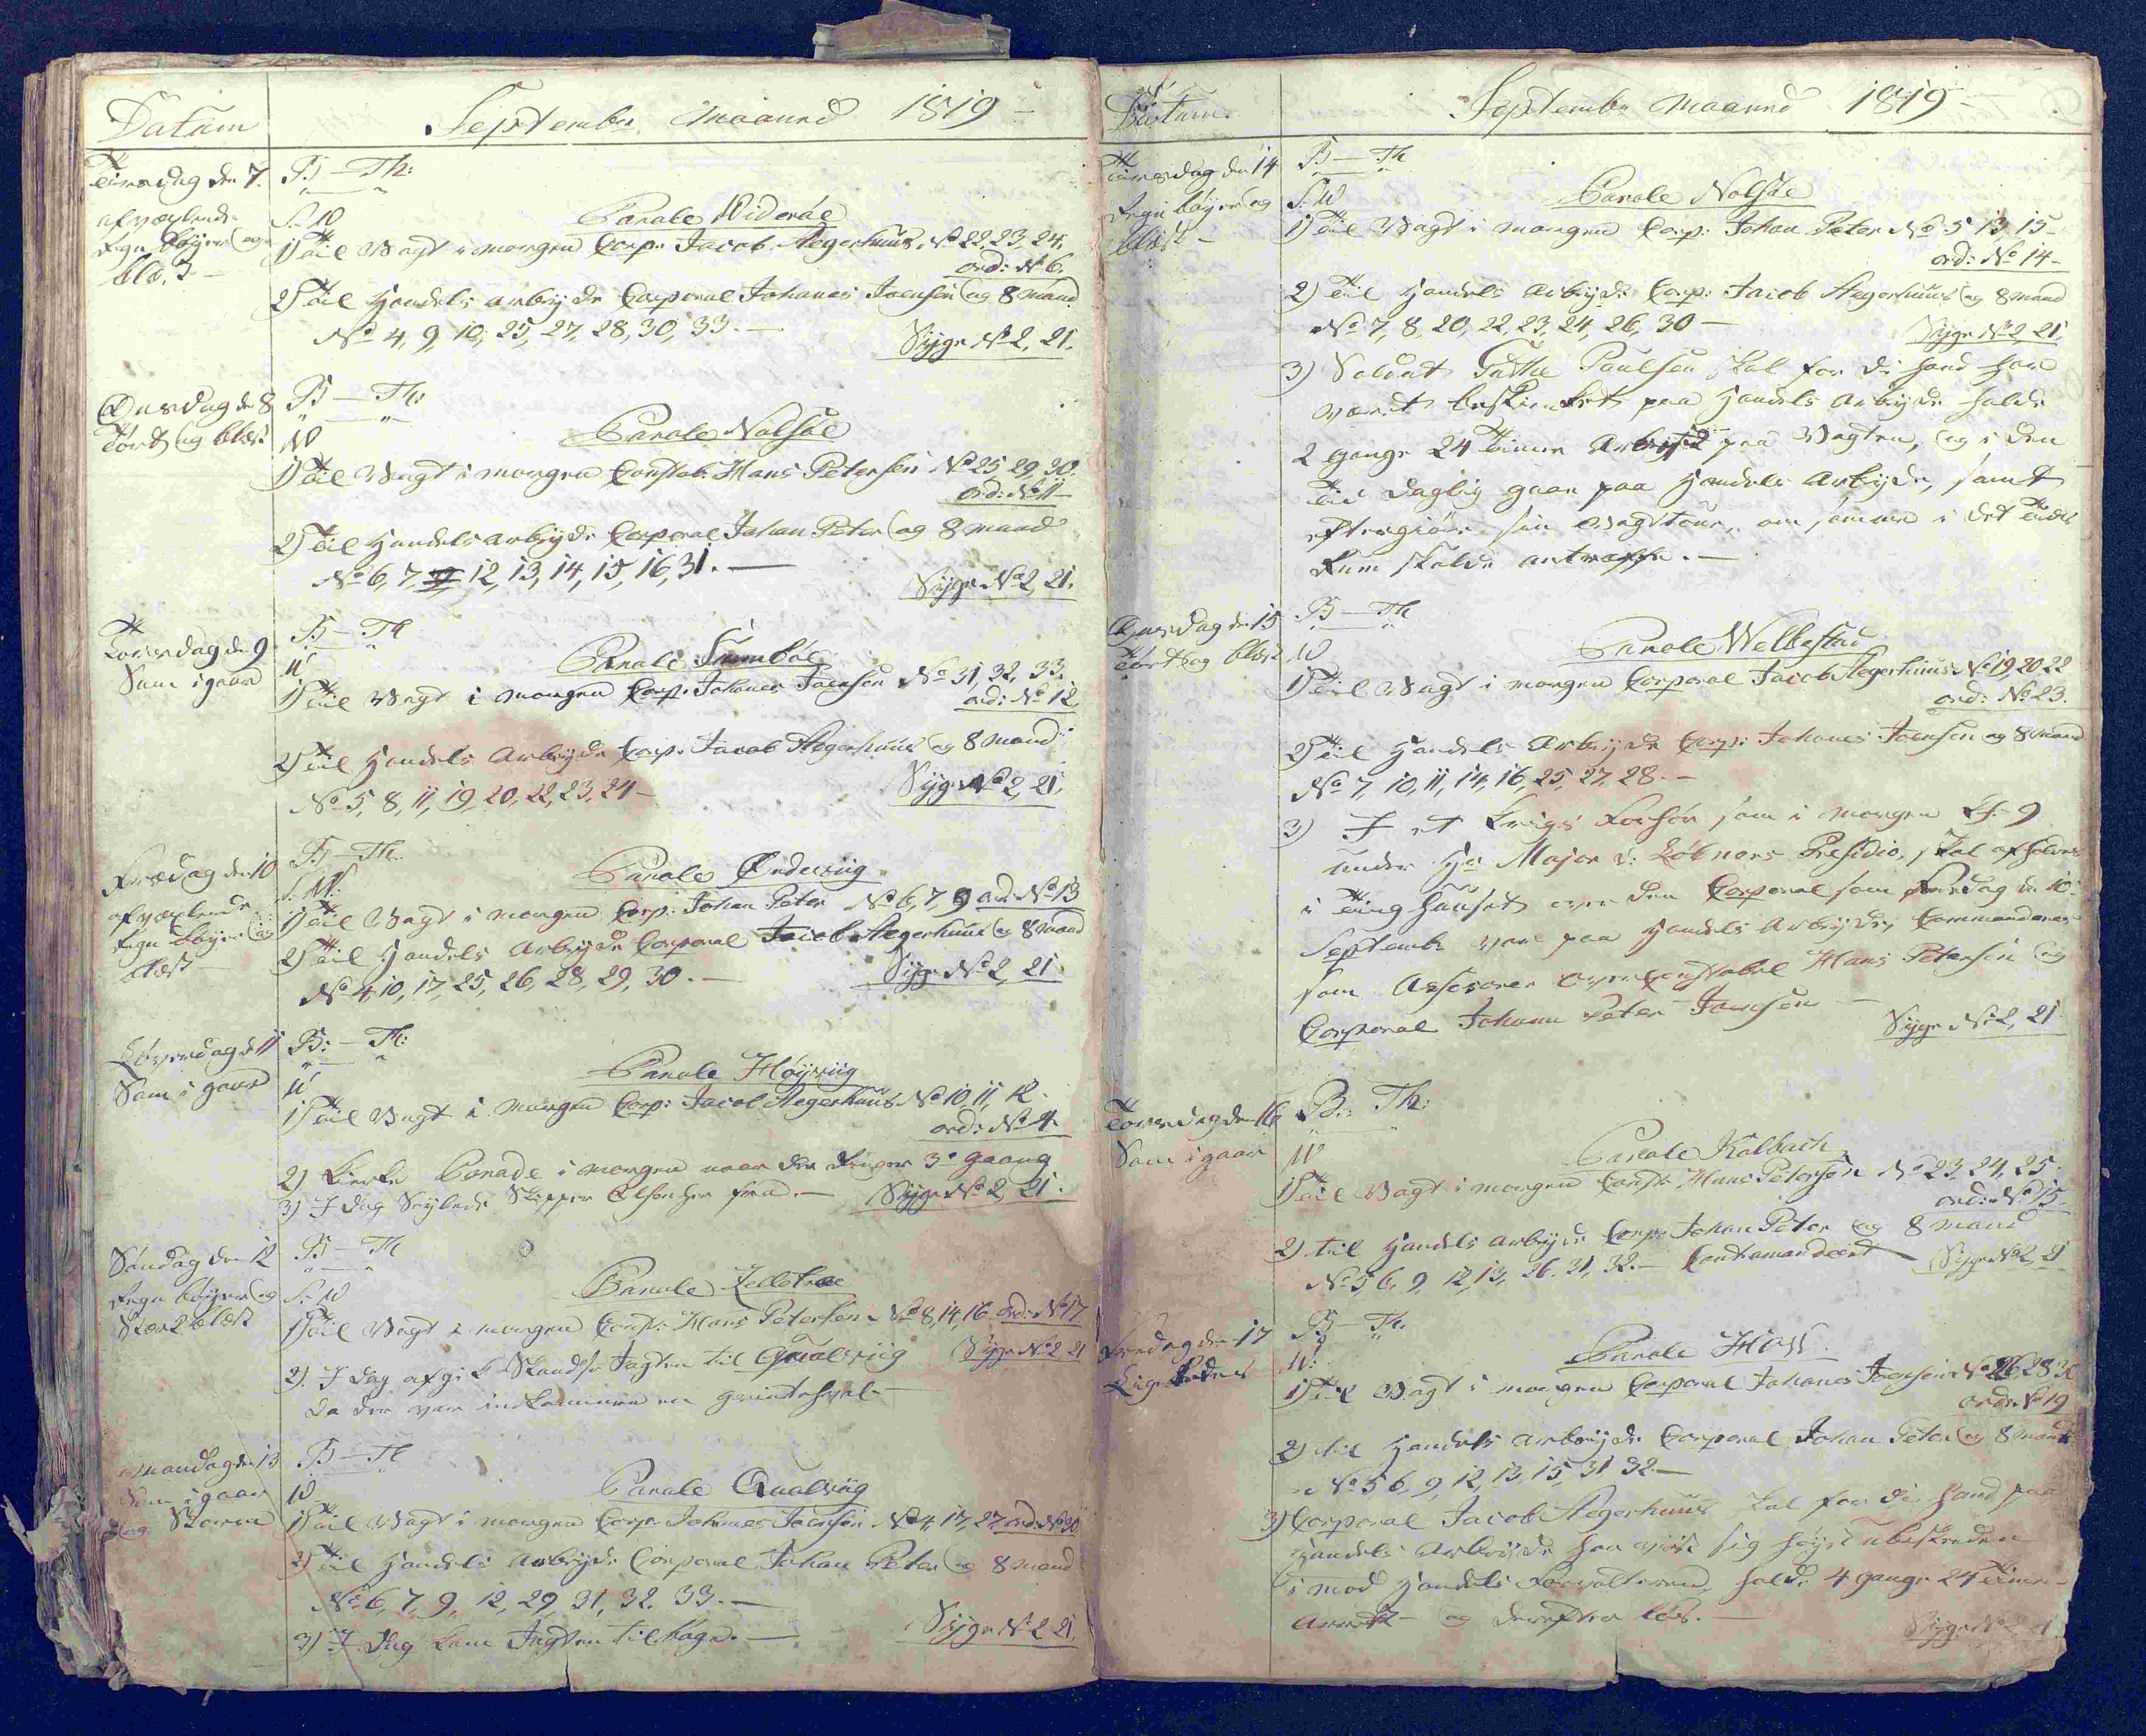 Datum
September Maaned 1819 –
Tirsdag den 7.
afvexlende
Regn bøyer og
blæst –
B – Th:
S. W
Parole Viderøe
1) Til Vagt i morgen Corp: Jacob Aegerhuus No 22, 23, 24,
ord: No 6.
2) Til Handels Arbejde Corporal Johanes Joensen og 8 mand
No 4, 9, 10, 25, 27, 28, 30, 33. –
Syge No 2, 21.
Onsdag den 8
Tørt og blæst
B – Th:
W
Parole Nolsøe
1) Til Vagt i morgen Constab. Hans Petersen No 25, 29, 30.
ord: No 11 –
2) Til Handels Arbejde Corporal Johan Peter og 8 mand
No 6, 7, 12, 13, 14, 15, 16, 31. –
Syge No 2, 21.
Torsdag den 9
Som i gaar
B – Th
W
Parole
1) Til Vagt i morgen Corp: Johanes Joensen No 31, 32, 33.
ord: No 12.
2) Til Handels Arbejde Corp: Jacob Aegerhuus og 8 mand
No 5, 8, 11, 19, 20, 22, 23, 24 –
Syge No 2, 21.
Fredag den 10
afvexlende
Regn bøyer og
blæst –
B – Th.
S. W:
Parole Ørdeviig
1) Til Vagt i morgen Corp: Johan Peter No 6, 7, 9 ord: No 13
2) Til Handels Arbejde Corporal Jacob Aegerhuus og 8 mand
No 4, 10, 17, 25, 26, 28, 29, 30. –
Syge No 2, 21.
Løverdag d 11
Som i gaar
B: – Th:
W
Parole Høyviig
1) Til Vagt i morgen Corp: Jacob Aegerhuus No 10, 11, 12.
ord: No 4.
2) Kirke Parade i morgen naar der Ringer 3de gaang
3) I dag Seylede Skipper fra. –
Syge No 2, 21.
Søndag den 12
Regn bøyer og
Stærk blæst
B – Th
S. W
Parole
1) Til Vagt i morgen Const: Hans Petersen No 8, 14, 16 ord: No 17
2) I dag afgik Skandse Jagten til Qualviig
Syge No 2 21
da der var indkommen en grindehval –
Mandag den 13
Som i gaar
og Storm
B – Th
W
Parole Qualviig
1) Til Vagt i morgen Corp: Johanes Joensen No 4, 17, 27, ord: No 30
2) Til Handels Arbejde Corporal Johan Peter og 8 mand
No 6, 7, 9, 12, 29, 31, 32, 33. –
3) I Dag kom Jagten tilbage. –
Syge No 2 21.
Datum
September Maaned 1819 –
Tirsdag den 14
Regn bøyer og
blæst –
B – Th
S. W
Parole Nolsøe
1) Til Vagt i morgen Corp: Johan Peter No 5 13, 15 –
ord: No 14 –
2) Til Handels Arbejde Corp: Jacob Aegerhuus og 8 mand
No 7, 8, 20, 22, 23, 24, 26, 30 –
Syge No 2, 21.
3) Soldat Poulsen skal for di hand har
været beskienket paa Handels Arbejde holde
2 gange 24 timer paa Vagten, og i den
Tid daglig gaar paa Handels Arbejde, samt
eftergiøre sin Vagttour, om samme i det Tids
Rum skulde antræffe. –
Onsdag den 15
Tørt og blæst
B – Th
W
Parole Welbestad
1) Til Vagt i morgen Corporal Jacob Aegerhuus No 19, 20 22
ord: No 23.
2) Til Handels Arbejde Corp: Johanes Joensen og 8 mand
No 7, 10, 11, 14, 16, 25, 27, 28. –
3) I et Krigs Forhør som i morgen Kl. 9
under Hr Major v: Løbners Presidio, skal afholdes
i Ting huuset over den Corporal som Fredag d 10
September var paa Handels Arbejde, Commanderes
som Assesorer Constabel Hans Petersen og
Corporal Johann Peter Joensen –
Syge No 2, 21.
Torsdag den 16
Som i gaar
B: Th:
W
Parole Kalbach
1) Til Vagt i morgen Const: Hans Petersen No 23, 24, 25.
ord: No 15
2) til Handels Arbejde Corp: Johan Peter og 8 mand
No 5, 6, 9, 12, 13, 26, 31, 32. – Contramanderet
Syge No 2, 21
Fredag den 17
Lige
B – Th.
W:
Parole
1) Til Vagt i morgen Corporal Johanes Joensen No 26, 28 30
ord: No 19
2) til Handels Arbejde Corporal Johan Peter og 8 mand
No 5 6, 9, 12, 13, 15, 31 32 –
3) Corporal Jacob Aegerhuus skal for di hand paa
Handels Arbejde har viist sig høyst ubeskeden
imod Handels Forvalteren, holde 4 gange 24 Timer
Arrest – og derefter løs. –
Syge No